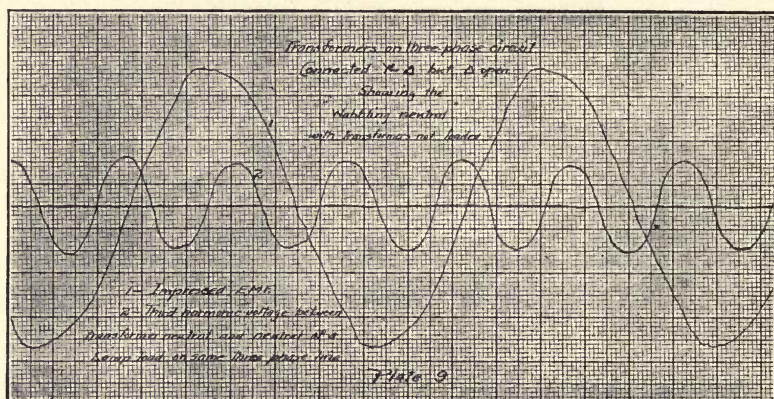 Transformers on three phase circuit
Connected Y Δ but Δ open
Showing the
"Wabbling neutral"
with transformers not loaded.
1
2
1- Impressed EMF.
2- Third harmonic voltage between
transformer neutral and neutral of a
Lamp load on same three phase line
Plate 9